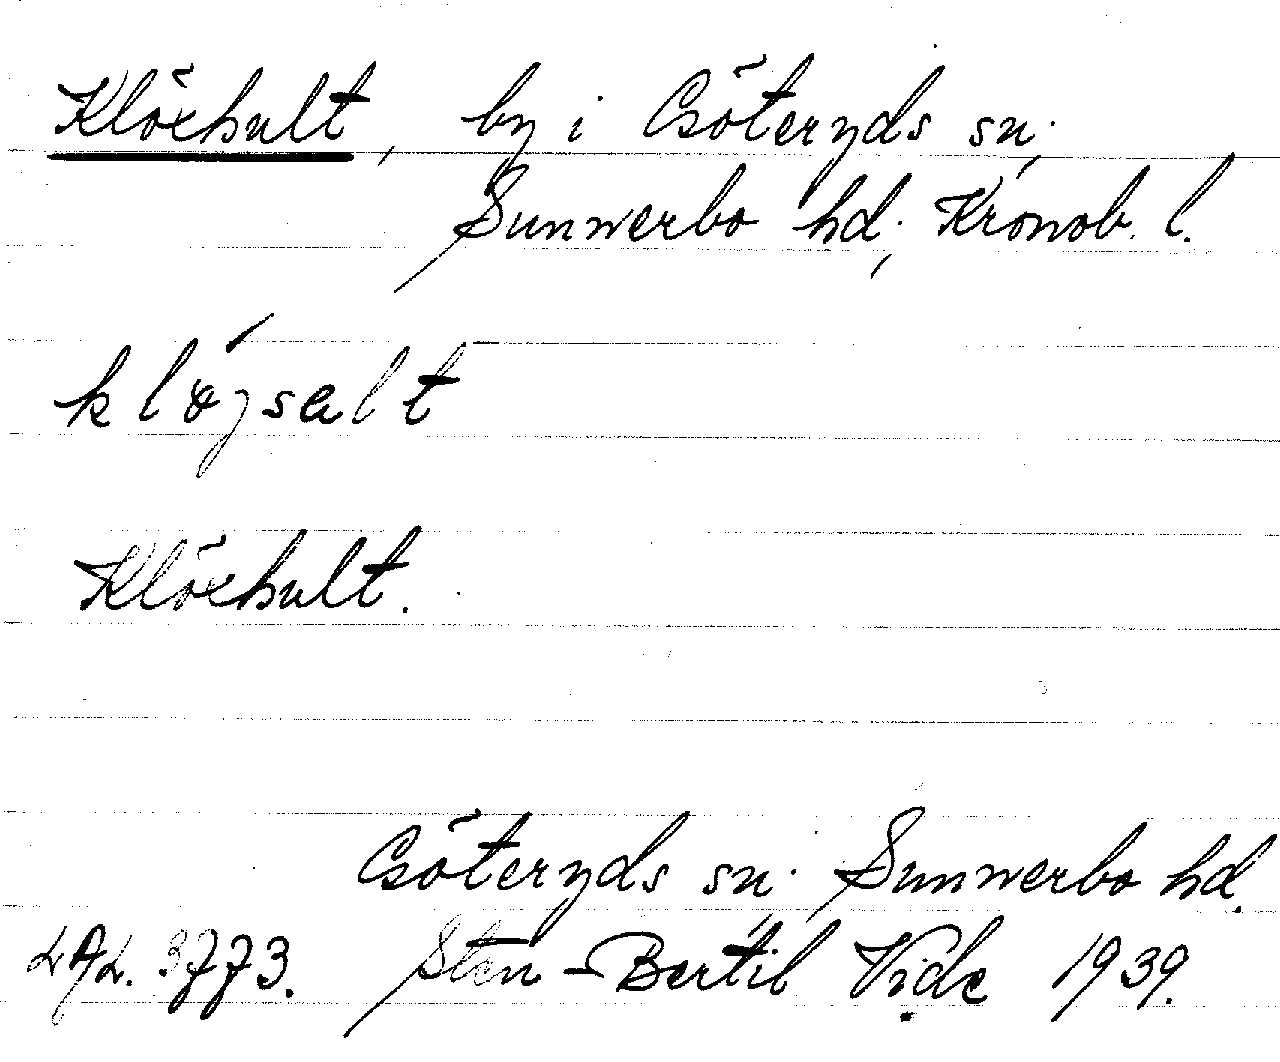 Klöxhult, by i Göteryds sn;
Sunnerbo hd; Kronob. l.
kløjsalt
Klöxhult.
Göteryds sn; Sunnerbo hd.
LAL. 3773. Sten-Bertil Vide 1939.